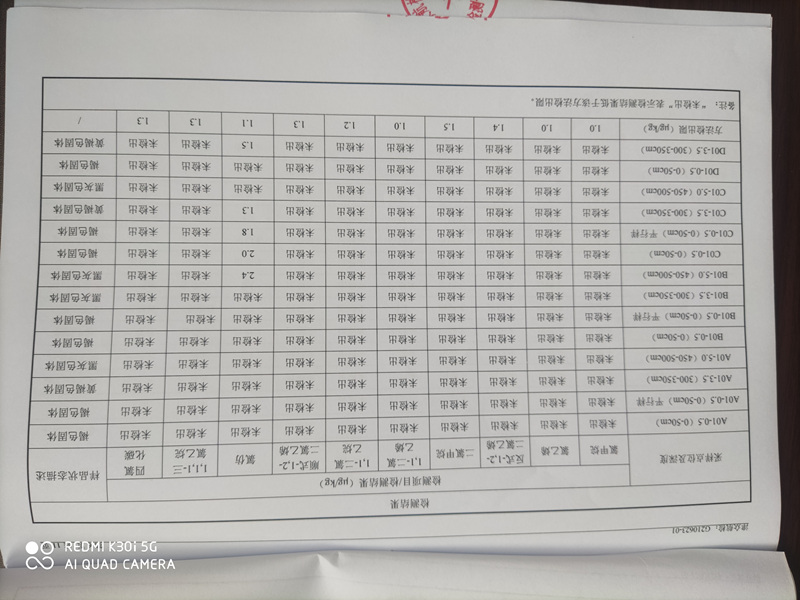 G210623-01
检测结果
采样点位及深度 检测项目/检测结果 (μg/kg) 样品状态描述
氯甲烷 氯乙烯 反式-1,2-二氯乙烯 二氯甲烷 1,1-二氯乙烯 1,1-二氯乙烷 顺式-1,2-二氯乙烯 氯仿 1,1,1-三氯乙烷 四氯化碳
A01-0.5（0-50cm） 未检出 未检出 未检出 未检出 未检出 未检出 未检出 未检出 未检出 未检出 褐色固体
A01-0.5（0-50cm）平行样 未检出 未检出 未检出 未检出 未检出 未检出 未检出 未检出 未检出 未检出 褐色固体
A01-3.5（300-350cm） 未检出 未检出 未检出 未检出 未检出 未检出 未检出 未检出 未检出 未检出 黄褐色固体
A01-5.0（450-500cm） 未检出 未检出 未检出 未检出 未检出 未检出 未检出 未检出 未检出 未检出 黑灰色固体
B01-0.5（0-50cm） 未检出 未检出 未检出 未检出 未检出 未检出 未检出 未检出 未检出 未检出 褐色固体
B01-0.5（0-50cm）平行样 未检出 未检出 未检出 未检出 未检出 未检出 未检出 未检出 未检出 未检出 褐色固体
B01-3.5（300-350cm） 未检出 未检出 未检出 未检出 未检出 未检出 未检出 未检出 未检出 未检出 黑灰色固体
B01-5.0（450-500cm） 未检出 未检出 未检出 未检出 未检出 未检出 未检出 2.4 未检出 未检出 黑灰色固体
C01-0.5（0-50cm） 未检出 未检出 未检出 未检出 未检出 未检出 未检出 2.0 未检出 未检出 褐色固体
C01-0.5（0-50cm）平行样 未检出 未检出 未检出 未检出 未检出 未检出 未检出 1.8 未检出 未检出 褐色固体
C01-3.5（300-350cm） 未检出 未检出 未检出 未检出 未检出 未检出 未检出 1.3 未检出 未检出 黄褐色固体
C01-5.0（450-500cm） 未检出 未检出 未检出 未检出 未检出 未检出 未检出 未检出 未检出 未检出 黑灰色固体
D01-0.5（0-50cm） 未检出 未检出 未检出 未检出 未检出 未检出 未检出 未检出 未检出 未检出 褐色固体
D01-3.5（300-350cm） 未检出 未检出 未检出 未检出 未检出 未检出 未检出 1.5 未检出 未检出 黄褐色固体
方法检出限（μg/kg） 1.0 1.0 1.4 1.5 1.0 1.2 1.3 1.1 1.3 1.3 /
备注：“未检出”表示检测结果低于该方法检出限。
REDMI K30i 5G
AI QUAD CAMERA